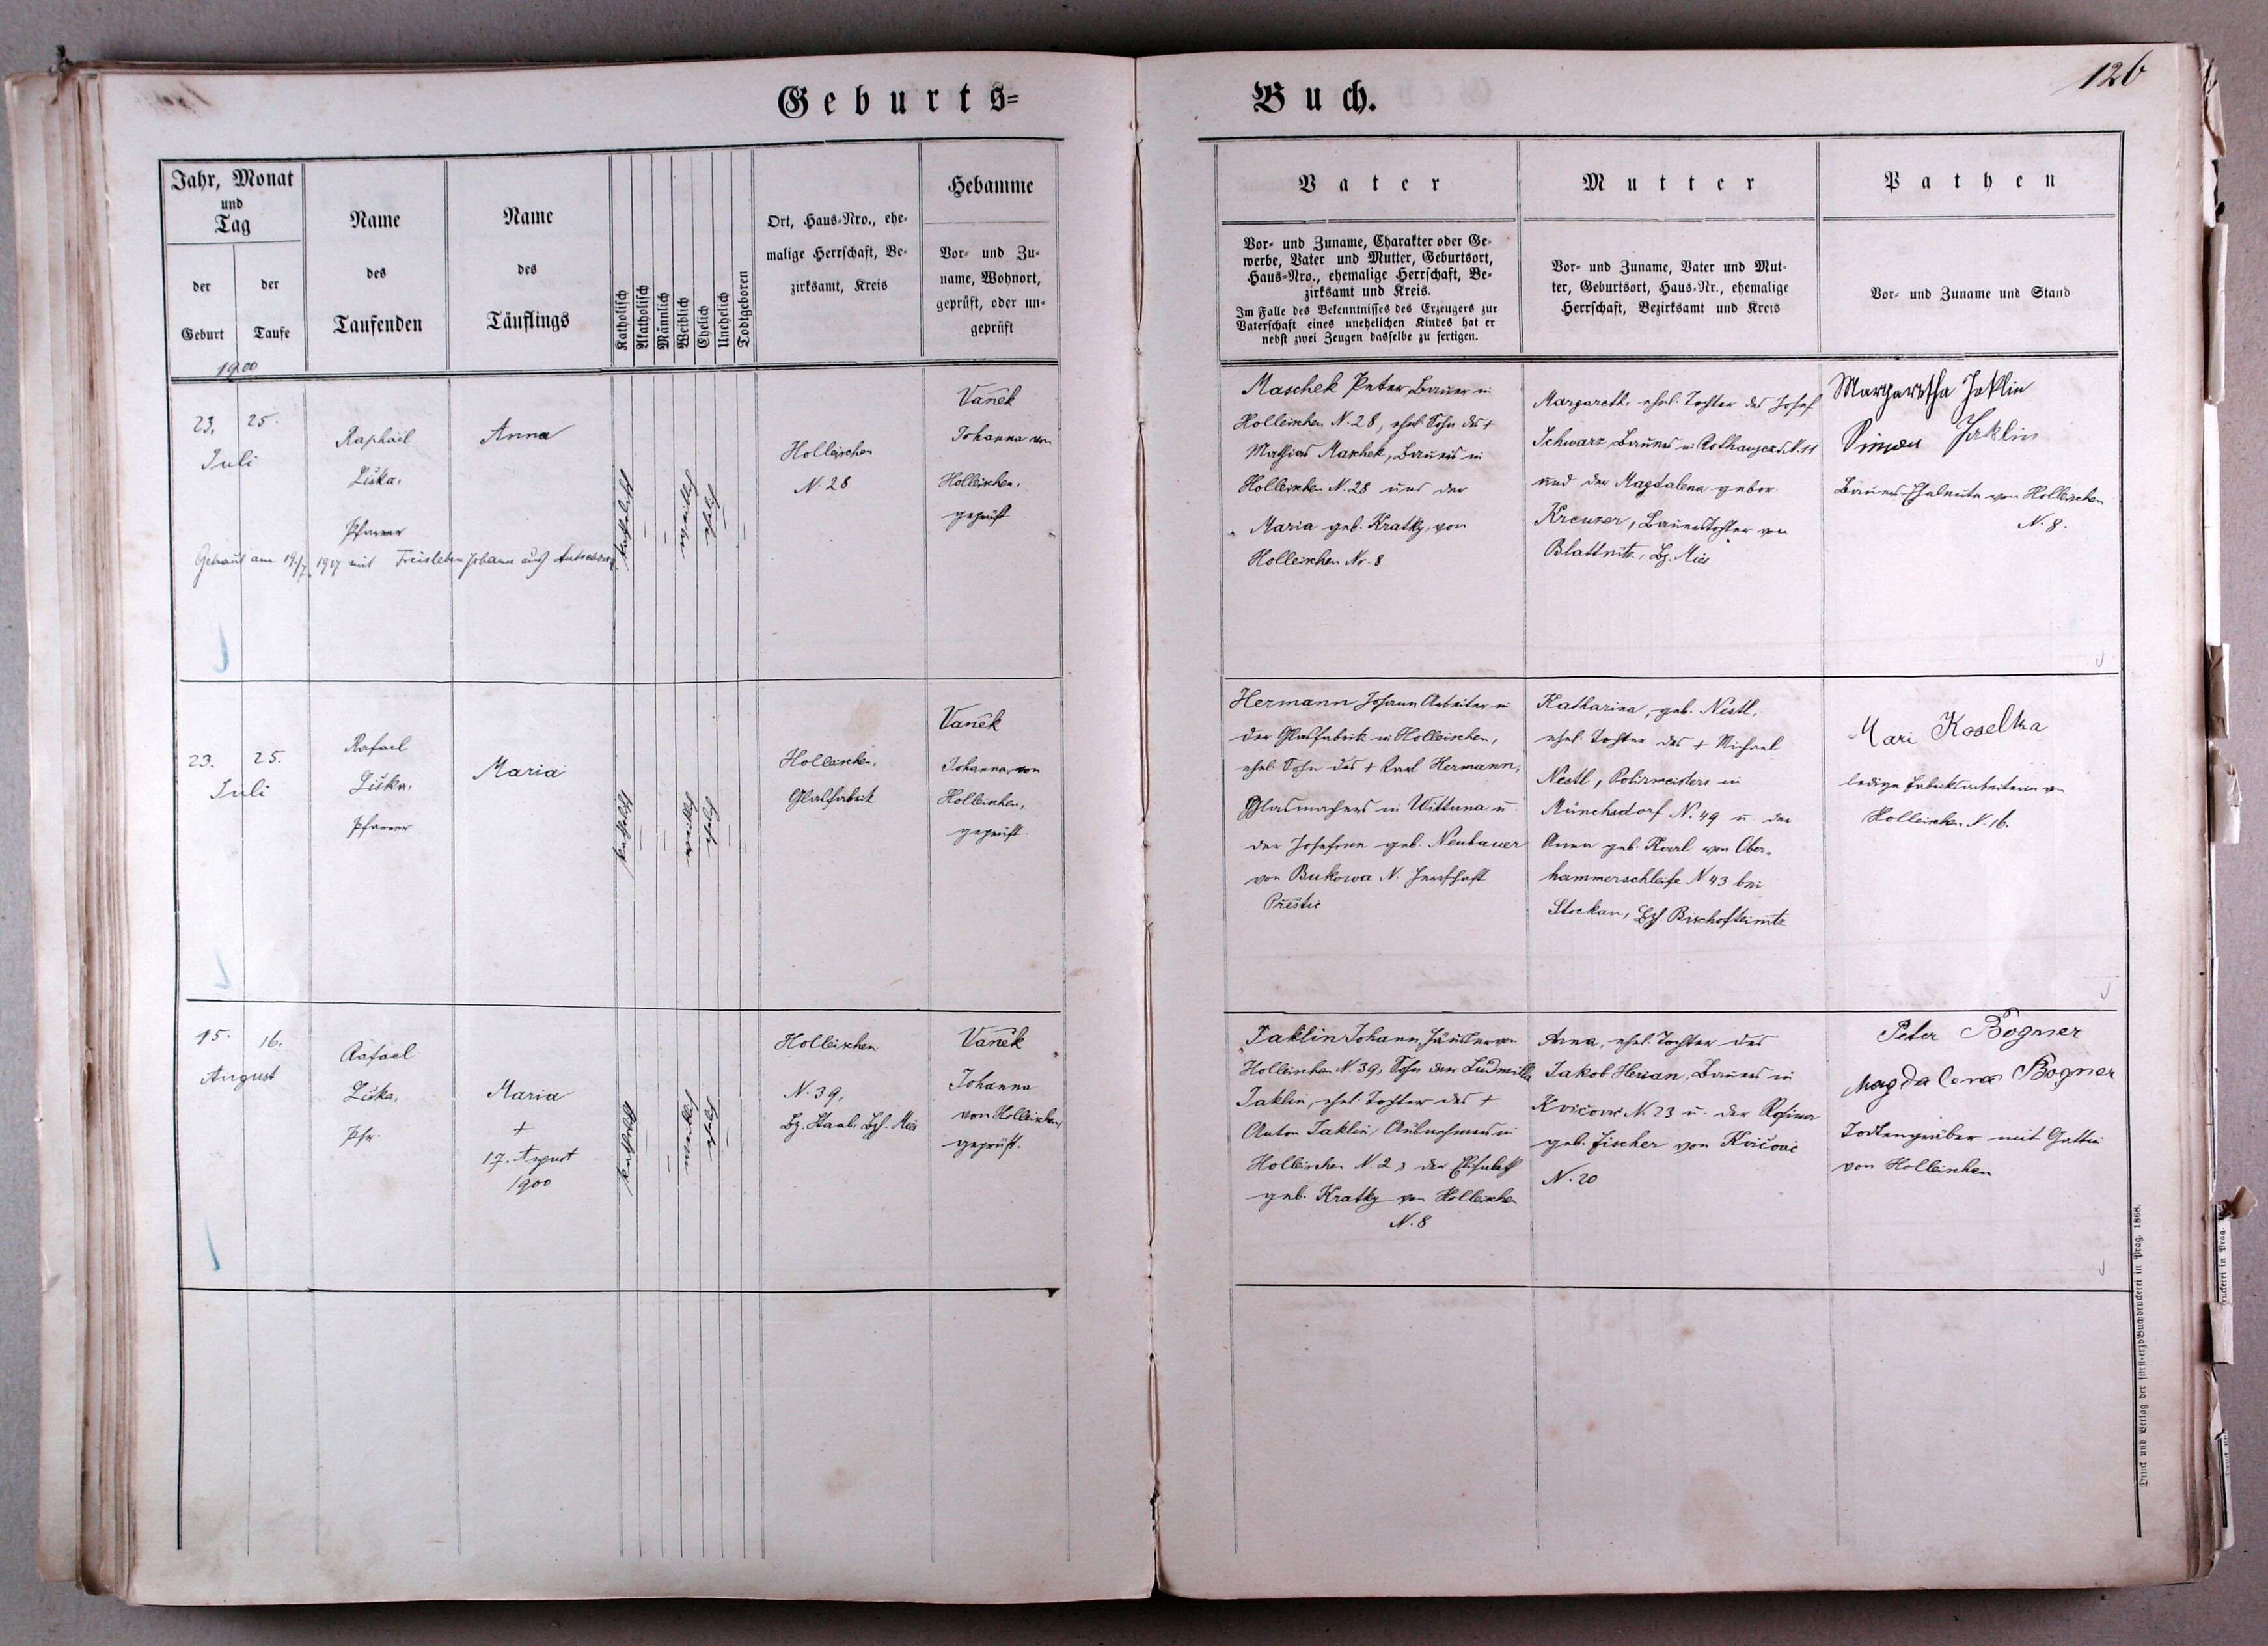 Geburts=
Buch.
126
Jahr, Monat
und
Tag
der
Geburt
der
Taufe
Name
des
Taufenden
Name
des
Täuflings
Katholisch
Akatholisch
Männlich
Weiblich
Ehelich
Unehelich
Todtgeboren
Ort, Haus-Nro., ehe-
malige Herrschaft, Be-
zirksamt, Kreis
Hebamme
Vor- und Zu-
name, Wohnort,
geprüft, oder un-
geprüft
Vater
Vor- und Zuname, Charakter oder Ge-
werbe, Vater und Mutter, Geburtsort,
Haus-Nro., ehemalige Herrschaft, Be-
zirksamt und Kreis.
Im Falle des Bekenntnisses des Erzeugers zur
Vaterschaft eines unehelichen Kindes hat er
nebst zwei Zeugen dasselbe zu fertigen.
Mutter
Vor- und Zuname, Vater und Mut-
ter, Geburtsort, Haus-Nr., ehemalige
Herrschaft, Bezirksamt und Kreis
Pathen
Vor- und Zuname und Stand
1900
23. 25.
Juli
Raphael
Liška,
Pfarrer
Anna
Getraut am 19./7. 1927 mit Freisleben Johann aus
katholisch
weiblich
ehelich
Holleischen
N. 28
Vaněk
Johanna von
Holleischen,
geprüft
Maschek Peter, Bauer in
Holleischen N. 28, ehel. Sohn des +
Mathias Maschek, Bauers in
Holleischen N. 28 und der
Maria geb. Kratky, von
Holleischen Nr. 8
Margareth, ehel. Tochter des Josef
Schwarz, Bauers in N. 11
und der Magdalena gebor.
Kreuzer, Bauerstochter von
Blattnitz, Bz. Mies
Margaretha Jaklin
Simon Jaklin
Bauers-Eheleute von Holleischen
N. 8.
23. 25.
Juli
Rafael
Liška,
Pfarrer
Maria
katholisch
weiblich
ehelich
Holleischen,
Glasfabrik
Vaněk
Johanna, von
Holleischen,
geprüft.
Hermann Johann Arbeiter in
der Glasfabrik in Holleischen,
ehel. Sohn des + Karl Hermann,
Glasmachers in Wittuna u.
der Josefine geb. Neubauer
von Bukowa N. Herrschaft
Přestic
Katharina, geb. Nestl,
ehel. Tochter des + Michael
Nestl, Polirmeisters in
Münchsdorf N. 49 u. der
Anna geb. Karl von Ober-
hammerschleife N 43 bei
Stockau, Bzh. Bischofteinitz
Mari Koselka
ledige Fabriksarbeiterin von
Holleischen N. 16.
15. 16.
August
Rafael
Liška,
Pfr.
Maria
+
17. August
1900
katholisch
weiblich
ehelich
Holleischen
N. 39,
Bz. Staab, Bzh. Mies
Vaněk
Johanna
von Holleischen,
geprüft.
Jaklin Johann, Häusler von
Holleischen N. 39, Sohn der Ludmilla
Jaklin, ehel. Tochter des +
Anton Jaklin, Ausnehmers in
Holleischen N. 2, der Elisabeth
geb. Kratky von Holleischen
N. 8
Anna, ehel. Tochter des
Jakob Herian, Bauers in
Kvičovic N. 23 u. der Rosina
geb. Fischer von Kvičovic
N. 20
Peter Bogner
Magdalena Bogner
Todtengräber mit Gattin
von Holleischen
Druck und Verlag der fürst-erzb. Buchdruckerei in Prag. 1868.